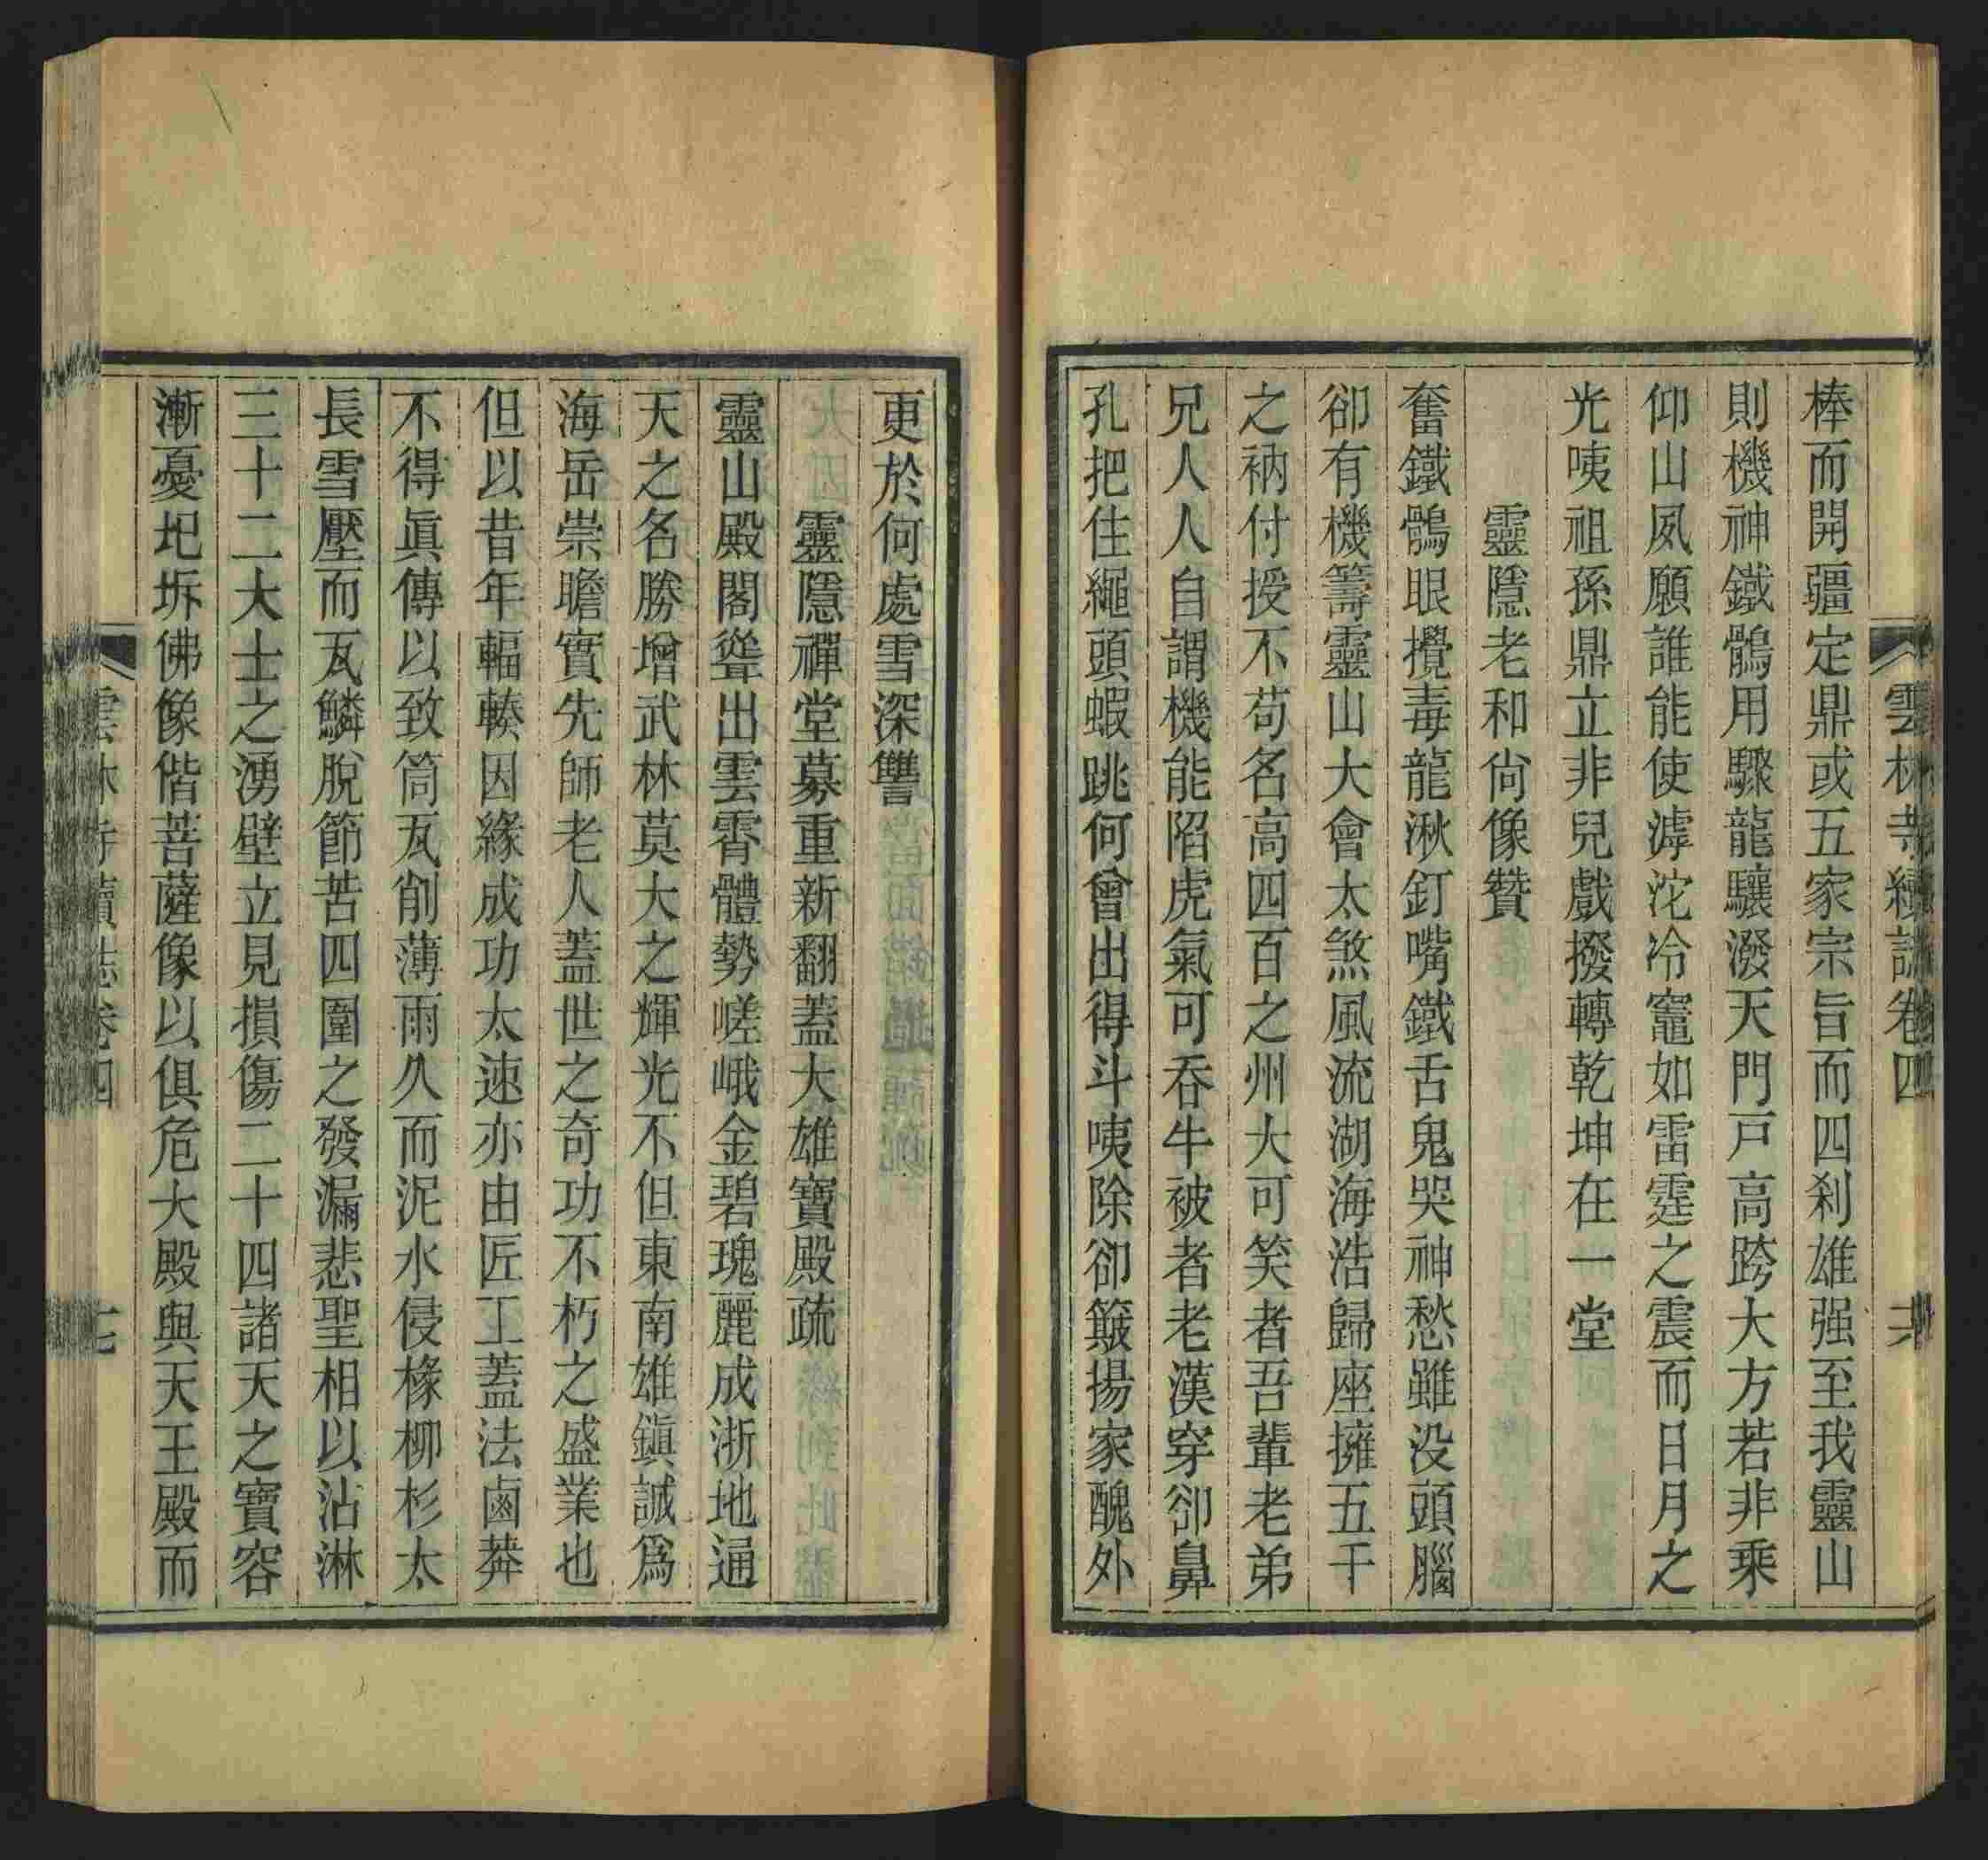 雲林寺續誌卷四 十六
棒而開疆定鼎或五家宗旨而四刹雄强至我靈山
則機神鐵鶻用驟龍驤潑天門戸高跨大方若非乘
仰山夙願誰能使滹沱冷竈如雷霆之震而日月之
光咦祖孫鼎立非兒戲撥轉乾坤在一堂
靈隱老和尙像贊
奮鐵鶻眼攪毒龍湫釘嘴鐵舌鬼哭神愁雖没頭腦
卻有機籌靈山大會太煞風流湖海浩歸座擁五千
之衲付授不苟名高四百之州大可笑者吾輩老弟
兄人人自謂機能陷虎氣可吞牛被者老漢穿卻鼻
孔把住繩頭蝦跳何曾出得斗咦除卻簸揚家醜外
更於何處雪深讐
靈隱禪堂募重新翻蓋大雄寶殿疏
靈山殿閣聳出雲霄體勢嵯峨金碧瑰麗成浙地通
天之名勝增武林莫大之輝光不但東南雄鎭誠爲
海岳崇瞻實先師老人蓋世之奇功不朽之盛業也
但以昔年輻輳因緣成功太速亦由匠工蓋法鹵莽
不得眞傳以致筒瓦削薄雨久而泥水侵椽柳杉太
長雪壓而瓦鱗脫節苦四圍之發漏悲聖相以沾淋
三十二大士之湧壁立見損傷二十四諸天之寶容
漸憂圯坼佛像偕菩薩像以俱危大殿與天王殿而
雲林寺續誌卷四 十七